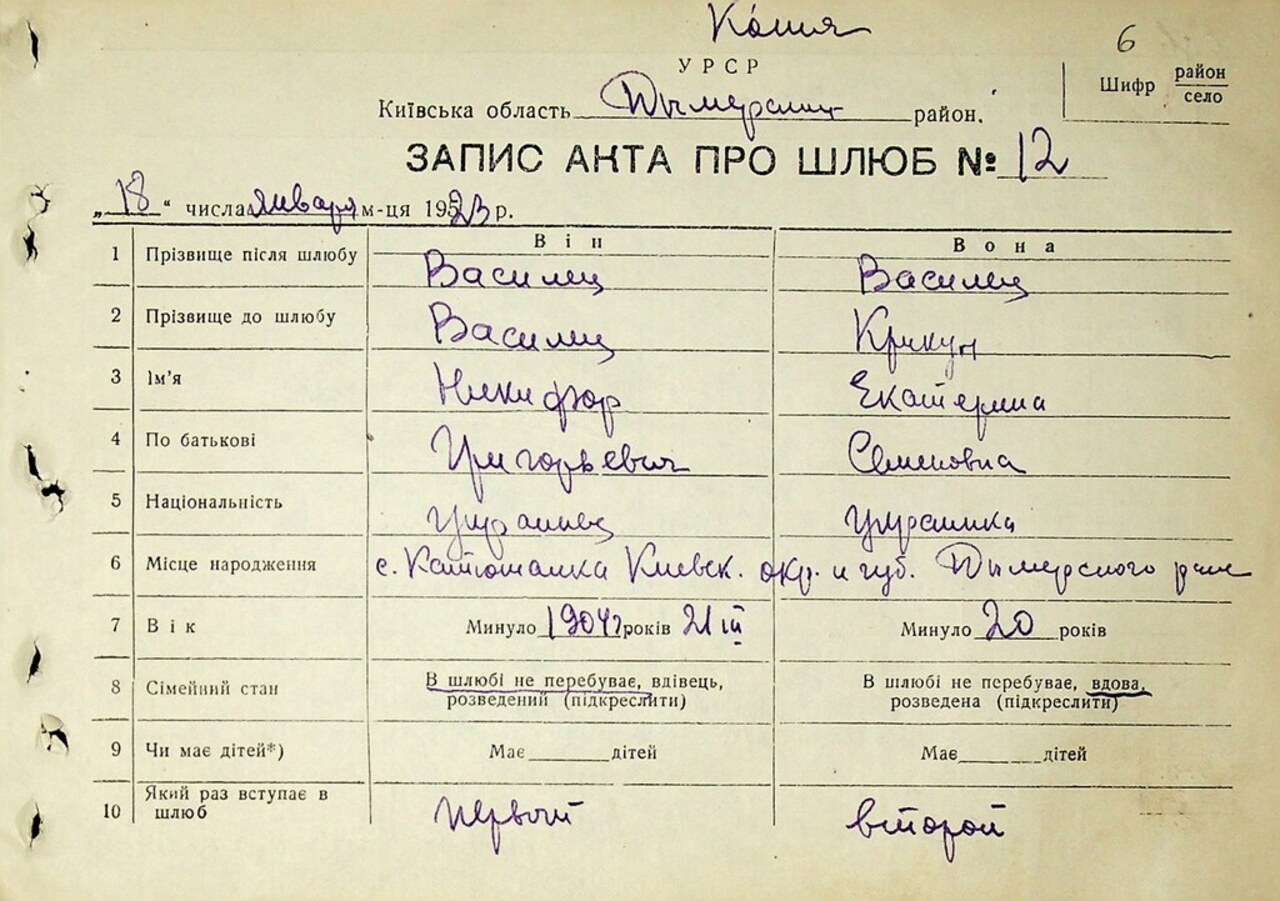 Копия
6
УРСР
Шифр район
село
Київська область Дымерский район.
ЗАПИС АКТА ПРО ШЛЮБ № 12
„18“ числа января м-ця 1923 р.
Він Вона
1 Прізвище після шлюбу Василец Василец
2 Прізвище до шлюбу Василец Крикун
3 Ім'я Никифор Екатерина
4 По батькові Григорьевич Семеновна
5 Національність Украинец Украинка
6 Місце народження с. Катюжанка Киевск. окр. и губ. Дымерского р-на
7 Вік Минуло 1904 г років 21 III Минуло 20 років
8 Сімейний стан В шлюбі не перебуває, вдівець, розведений (підкреслити) В шлюбі не перебуває, вдова, розведена (підкреслити)
9 Чи має дітей*) Має дітей Має дітей
10 Який раз вступає в шлюб первый второй